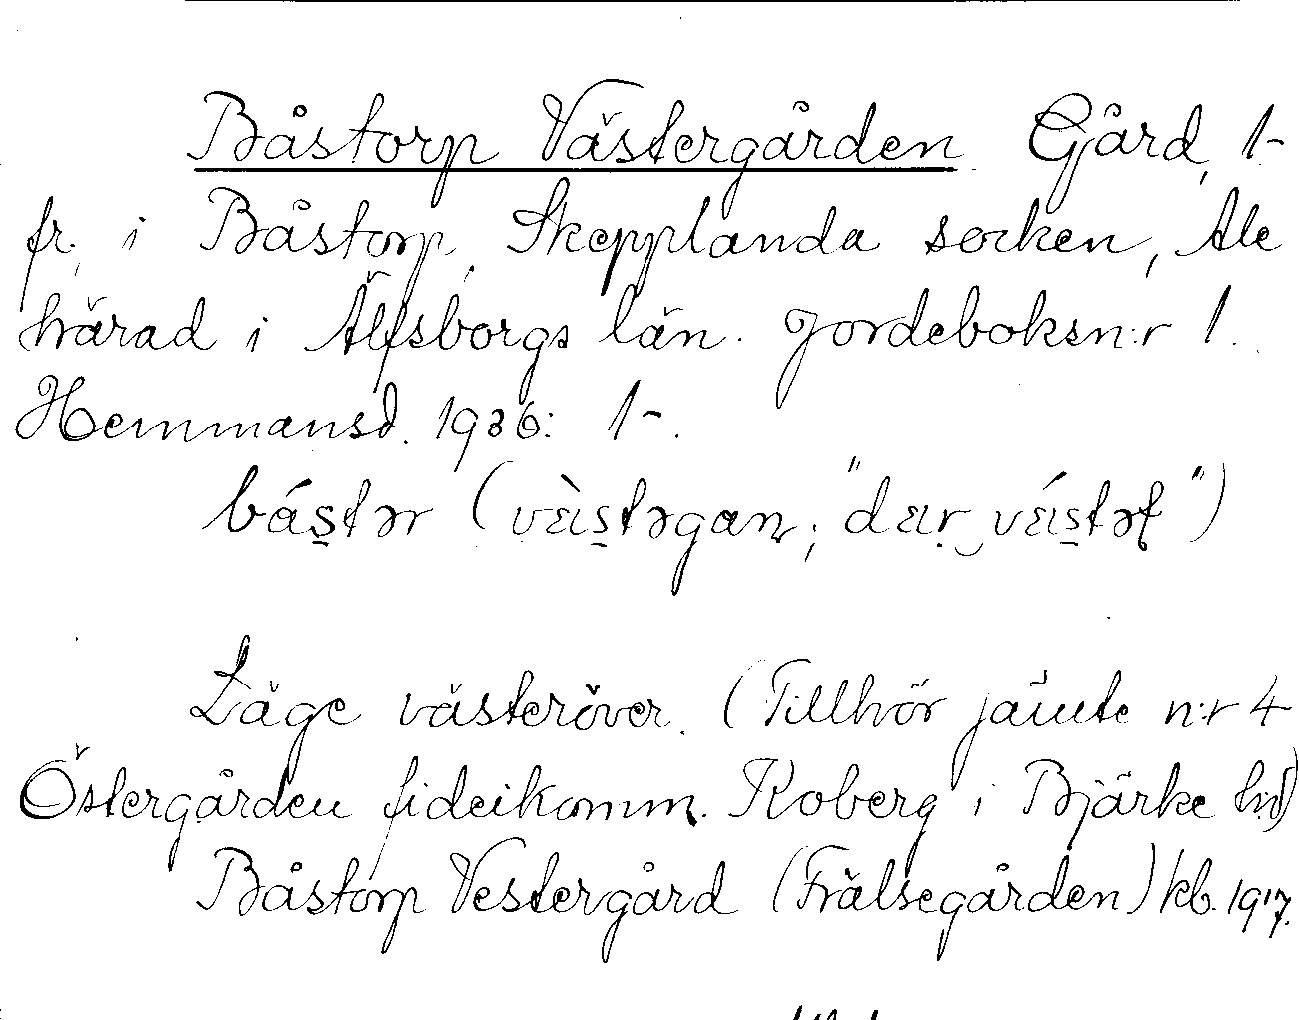 Båstorp Västergården Gård, 1-
fr. i Båstorp, Skepplanda socken, Ale
härad i Älfsborgs län. Jordeboksn:r 1.
Hemmansd. 1936: 1-.
bástər (vὲistəgan; "dεir véistət")
Läge västeröver. (Tillhör jämte n:r 4
Östergården fideikomm. Koberg i Bjärke hd)
Båstorp Vestergård (Frälsegården) kb. 1917.